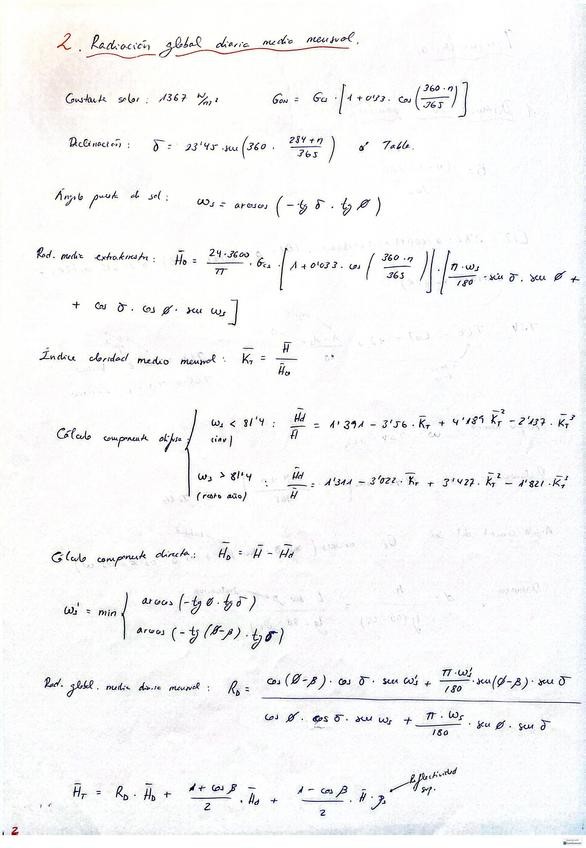 2. Radiación global diaria media mensual.
Constante solar: 1367 W/m² Gon = Gcs · [1 + 0'033 · cos (360·n / 365)]
Declinación: δ = 23'45 · sen (360 · (284+n) / 365) ó Tabla.
Ángulo puesta de sol: ωs = arcos (-tg δ · tg Ø)
Rad. media extraterrestre: H̄o = (24·3600 / π) · Gcs · [1 + 0'033 · cos (360·n / 365)] · [(π·ωs / 180) · sin δ · sen Ø +
+ cos δ · cos Ø · sen ωs]
Índice claridad medio mensual: K̄T = H̄ / H̄o
Cálculo componente difusa
ωs < 81'4 : H̄d / H̄ = 1'391 - 3'56 · K̄T + 4'189 · K̄T² - 2'137 · K̄T³
ωs > 81'4 : H̄d / H̄ = 1'311 - 3'022 · K̄T + 3'427 · K̄T² - 1'821 · K̄T³
(resto año)
Cálculo componente directa: H̄D = H̄ - H̄d
ωs' = min { arcos (-tg Ø · tg δ)
arcos (-tg (Ø-β) · tg δ)
Rad. global. media diaria mensual: RD = (cos (Ø-β) · cos δ · sen ωs' + (π·ωs' / 180) · sen (Ø-β) · sen δ) / (cos Ø · cos δ · sen ωs + (π·ωs / 180) · sen Ø · sen δ)
H̄T = RD · H̄D + (1 + cos β / 2) · H̄d + (1 - cos β / 2) · H̄ · ρs
Reflectividad sup.
2